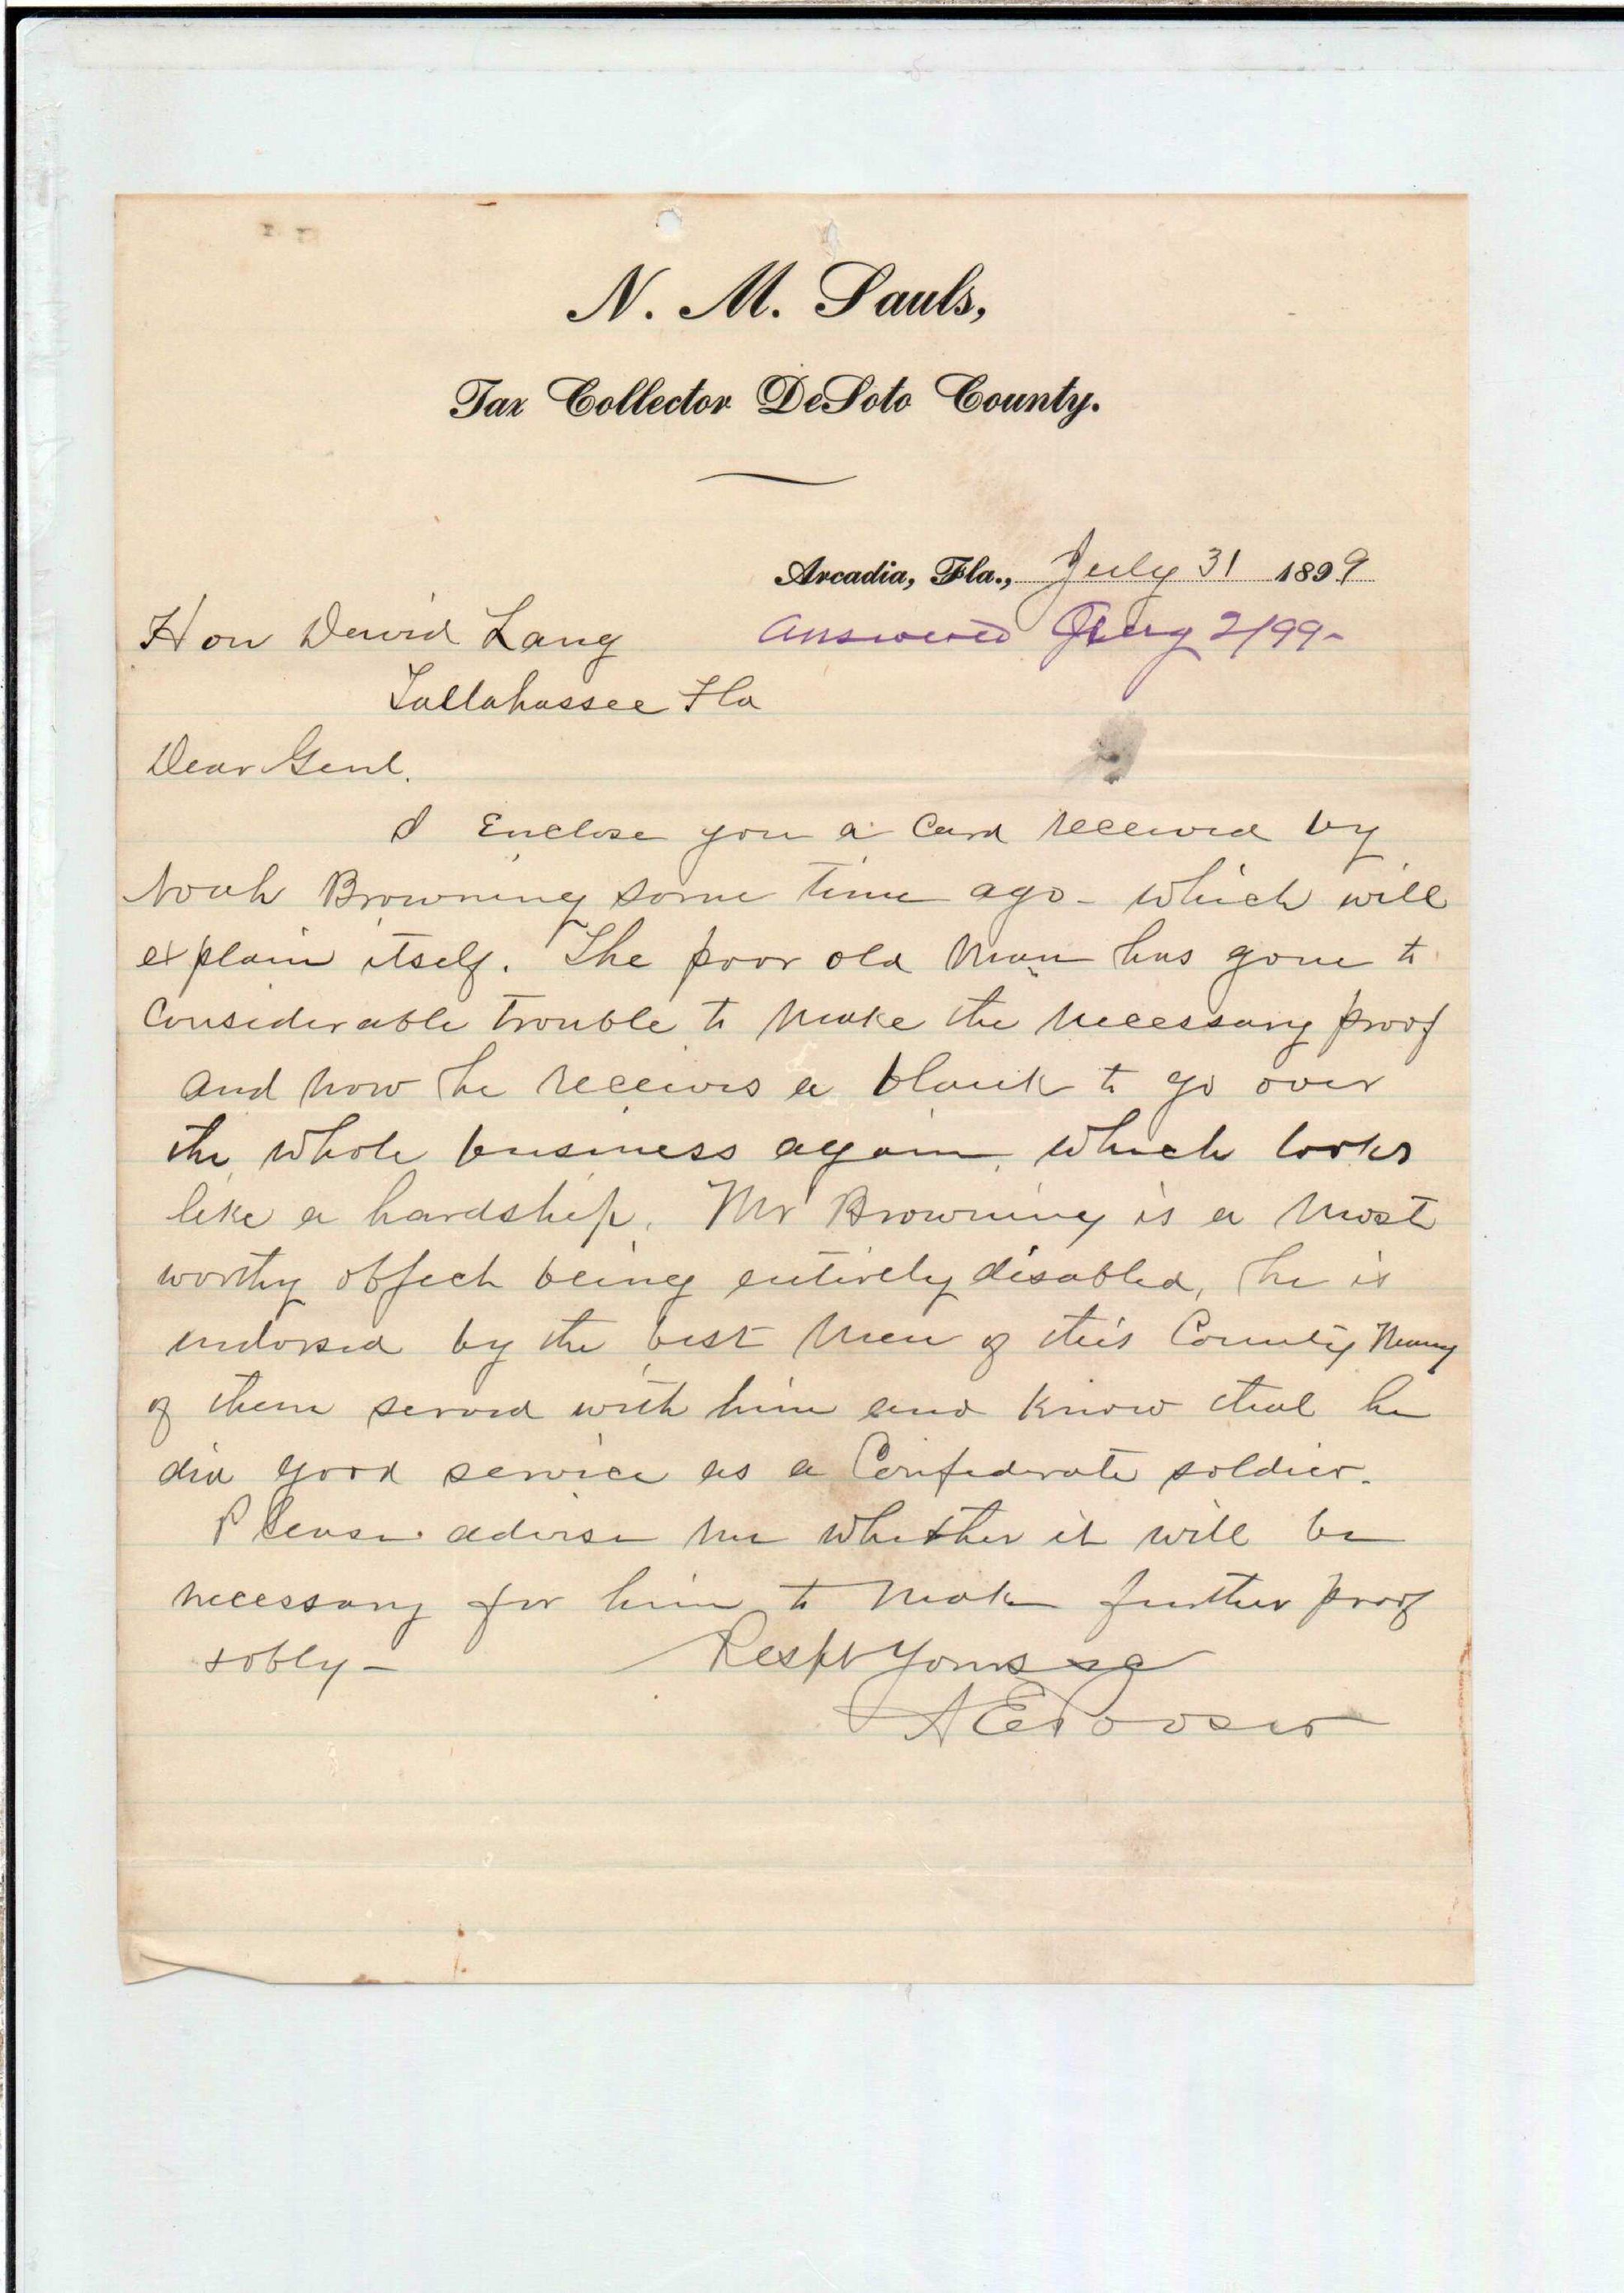 N. M. Sauls,
Tax Collector DeSoto County.
Arcadia, Fla., July 31 1899
Hon David Lang
answered Aug 2/99-
Tallahassee Fla
Dear Genl.
I Enclose you a Card received by
Noah Browning some time ago - which will
explain itself. The poor old man has gone to
Considerable trouble to make the necessary proof
and now he receives a blank to go over
the whole business again, which looks
like a hardship. Mr Browning is a most
worthy object being entirely disabled, he is
endorsed by the best men of this County Many
of them served with him and know that he
did good service as a Confederate soldier.
Please advise me whether it will be
necessary for him to make further proof
Respt Yours
A E Pooser